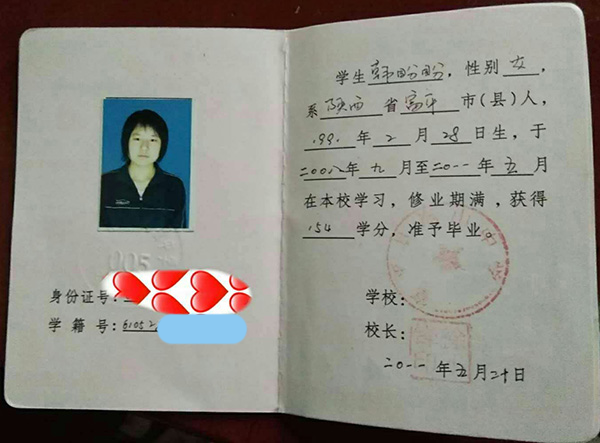 身份证号:
学籍号:61052
学生韩盼盼,性别女,
系陕西省富平市(县)人,
199. 年2月28日生,于
二00八年九月至二0一一年五月
在本校学习,修业期满,获得
154学分,准予毕业。
学校:
校长:
二0一一年五月二十日